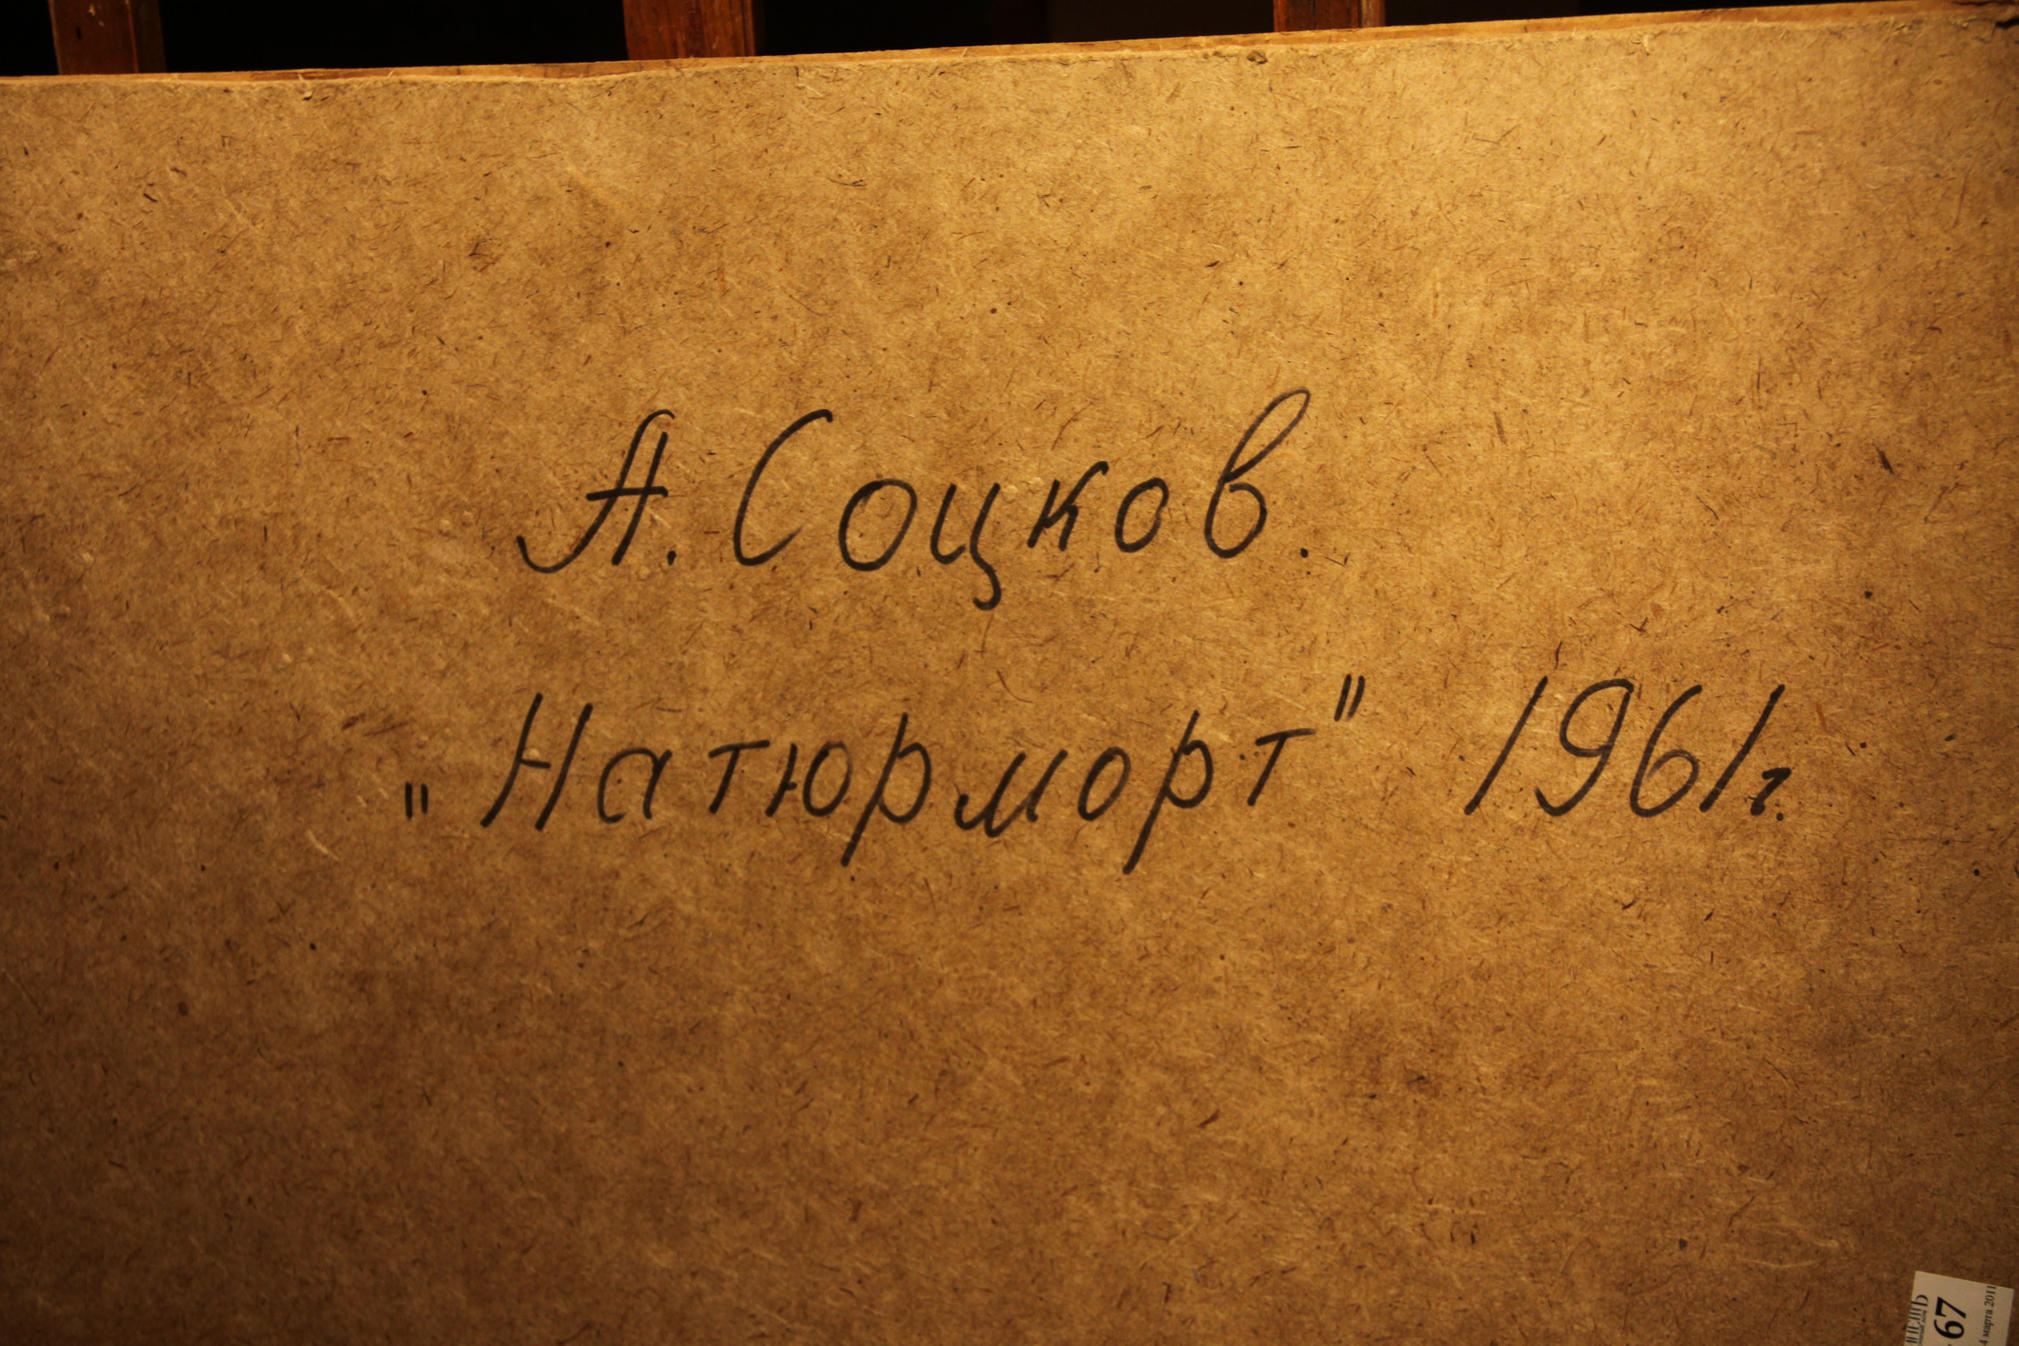 А. Соцков.
„Натюрморт" 1961 г.
67
4 марта 2011